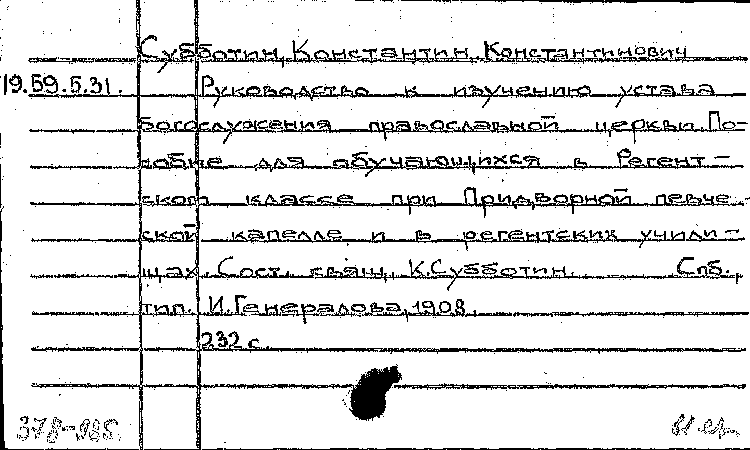 Субботин, Константин Константинович
19.59.5.31. Руководство к изучению устава
богослужения православной церкви. По-
собие для обучающихся в Регент-
ском классе при Придворной певче-
ской капелле и в регентских учили-
щах. Сост. свящ. К. Субботин. Спб.,
тип. И. Генералова, 1908.
232 с.
378-985.